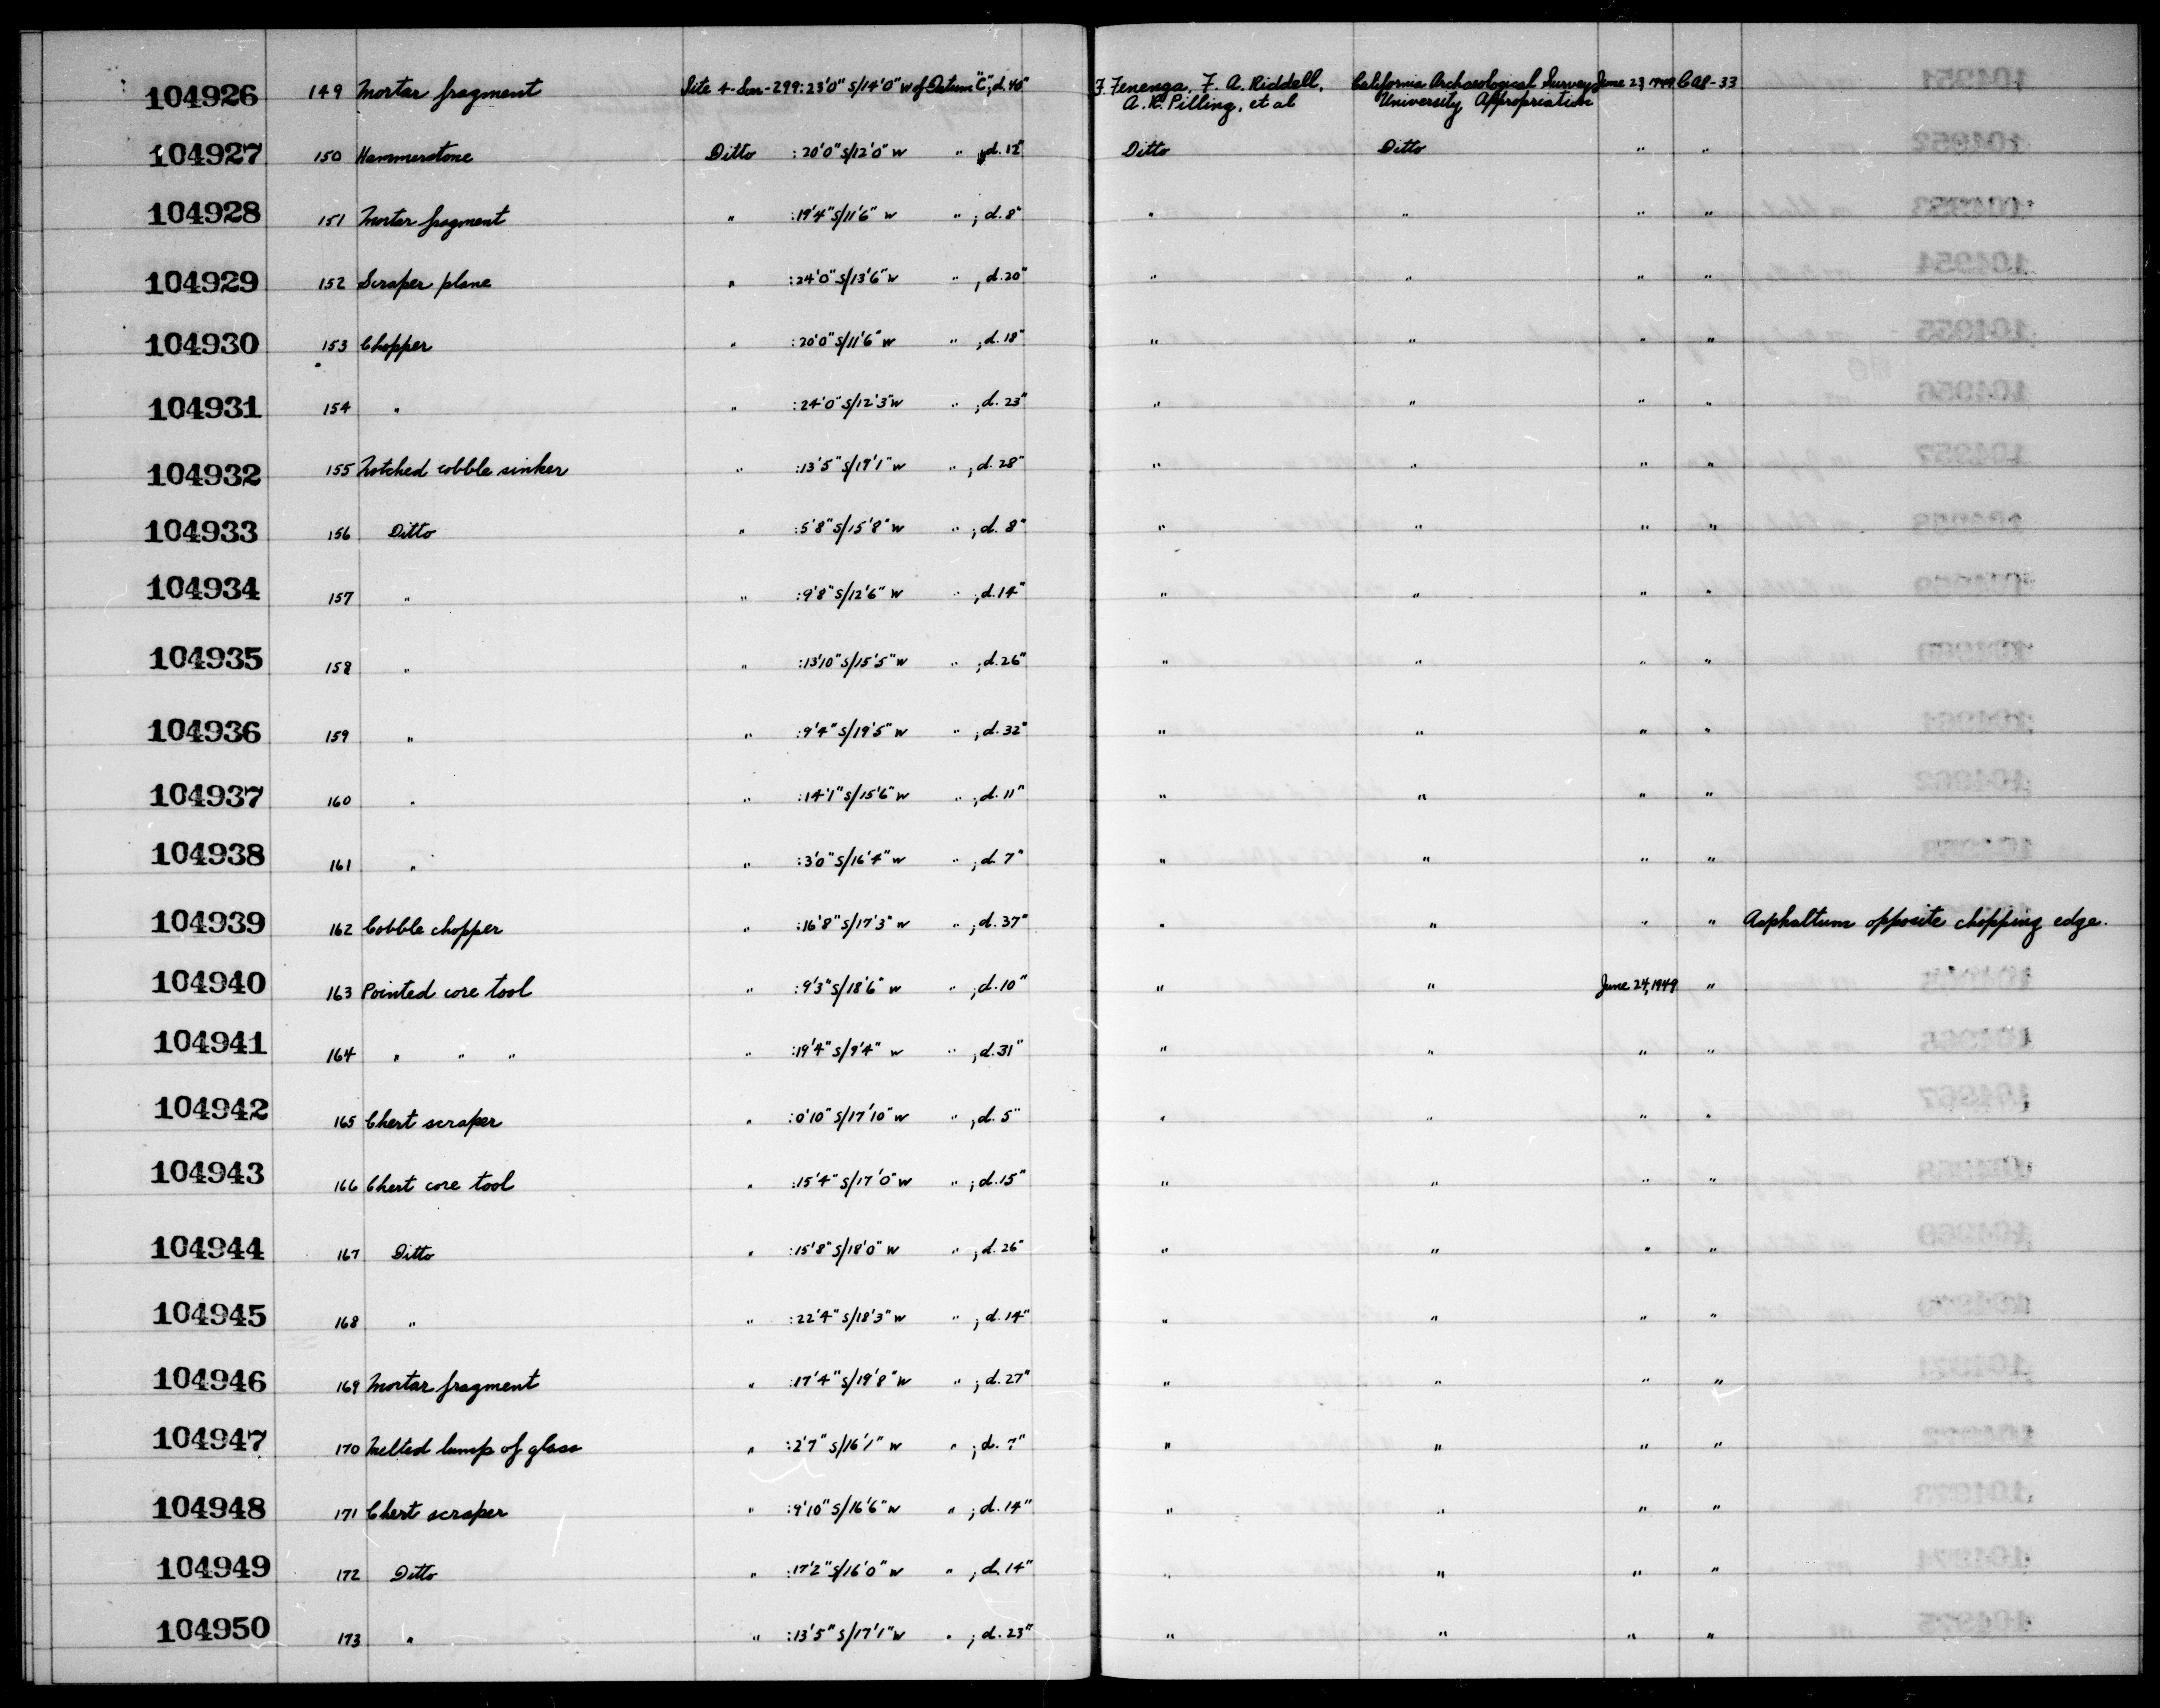 104926 149 Mortar fragment Site 4-Son-299: 23'0" S/14'0" W of Datum "C"; d. 40" F. Fenenga, F. A. Riddell, California Archaeological Survey June 23, 1949 CAS-33
A. R. Pilling, et al University Appropriation
104927 150 Hammerstone Ditto : 20'0" S/12'0" W " ; d. 12" Ditto Ditto " "
104928 151 Mortar fragment " : 19'4" S/11'6" W " ; d. 8" " " " "
104929 152 Scraper plane " : 24'0" S/13'6" W " ; d. 20" " " " "
104930 153 Chopper " : 20'0" S/11'6" W " ; d. 18" " " " "
104931 154 " " : 24'0" S/12'3" W " ; d. 23" " " " "
104932 155 Notched cobble sinker " : 13'5" S/19'1" W " ; d. 28" " " " "
104933 156 Ditto " : 5'8" S/15'8" W " ; d. 8" " " " "
104934 157 " " : 9'8" S/12'6" W " ; d. 14" " " " "
104935 158 " " : 13'10" S/15'5" W " ; d. 26" " " " "
104936 159 " " : 9'4" S/19'5" W " ; d. 32" " " " "
104937 160 " " : 14'1" S/15'6" W " ; d. 11" " " " "
104938 161 " " : 3'0" S/16'4" W " ; d. 7" " " " "
104939 162 Cobble chopper " : 16'8" S/17'3" W " ; d. 37" " " " " Asphaltum opposite chopping edge.
104940 163 Pointed core tool " : 9'3" S/18'6" W " ; d. 10" " " June 24, 1949 "
104941 164 " " " " : 19'4" S/9'4" W " ; d. 31" " " " "
104942 165 Chert scraper " : 0'10" S/17'10" W " ; d. 5" " " " "
104943 166 Chert core tool " : 15'4" S/17'0" W " ; d. 15" " " " "
104944 167 Ditto " : 15'8" S/18'0" W " ; d. 26" " " " "
104945 168 " " : 22'4" S/18'3" W " ; d. 14" " " " "
104946 169 Mortar fragment " : 17'4" S/19'8" W " ; d. 27" " " " "
104947 170 Melted lump of glass " : 2'7" S/16'1" W " ; d. ?" " " " "
104948 171 Chert scraper " : 9'10" S/16'6" W " ; d. 14" " " " "
104949 172 Ditto " : 17'2" S/16'0" W " ; d. 14" " " " "
104950 173 " " : 13'5" S/17'1" W " ; d. 23" " " " "